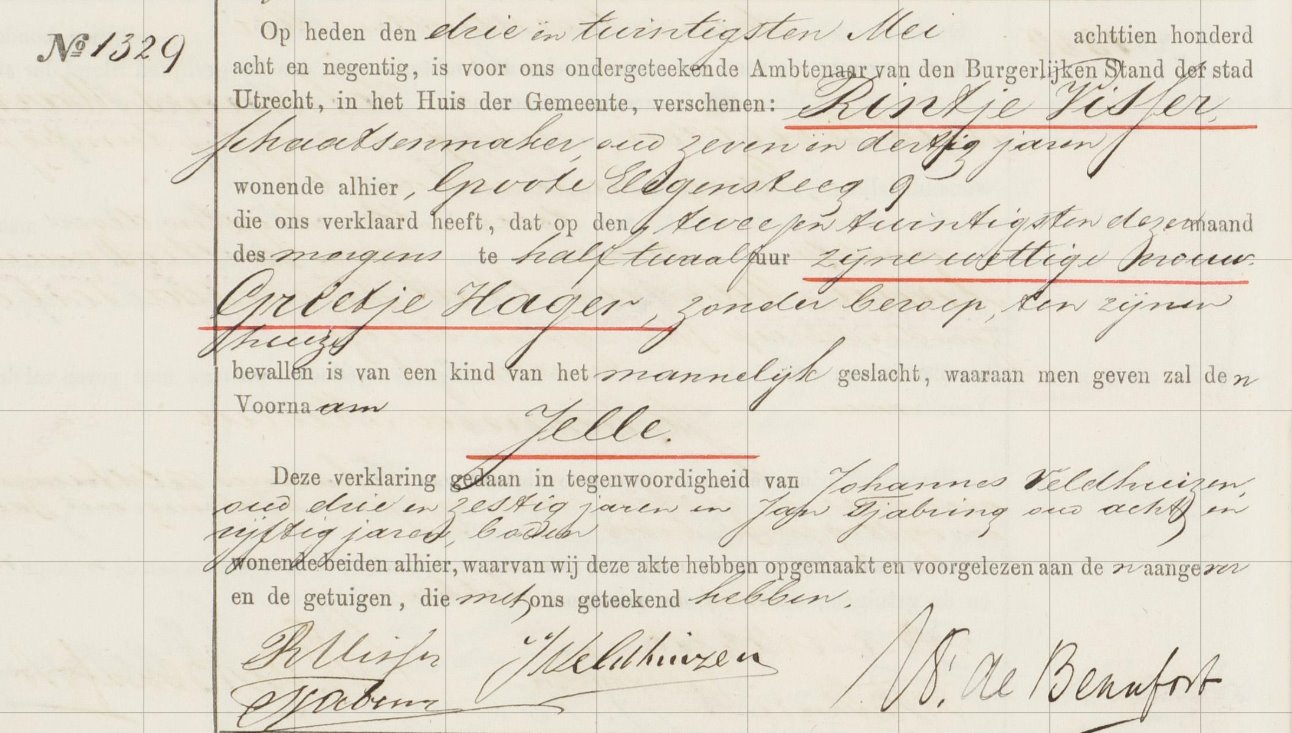 No 1329
Op heden den drie en twintigsten Mei achttien honderd
acht en negentig, is voor ons ondergeteekende Ambtenaar van den Burgerlijken Stand der stad
Utrecht, in het Huis der Gemeente, verschenen: Rintje Visser,
schaatsenmaker, oud zeven en dertig jaren
wonende alhier, Groote Eligensteeg 9
die ons verklaard heeft, dat op den twee en twintigsten dezer maand
des morgens te half twaalf uur zijne wettige vrouw
Grietje Hager, zonder beroep, ten zijnen
huize
bevallen is van een kind van het mannelijk geslacht, waaraan men geven zal den
Voornaam
Jelle.
Deze verklaring gedaan in tegenwoordigheid van Johannes Veldhuizen,
oud drie en zestig jaren en Jan Tjabring oud acht en
vijftig jaren, boden
wonende beiden alhier, waarvan wij deze akte hebben opgemaakt en voorgelezen aan den aangever
en de getuigen, die met ons geteekend hebben.
R Visser JVeldhuizen W. de Beaufort